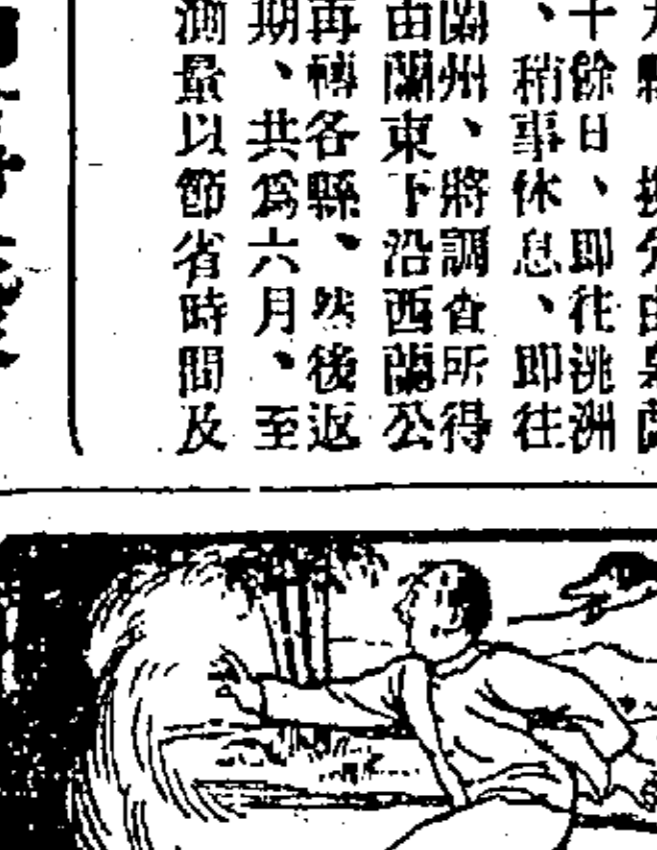 十餘日、即往洮洲
、稍事休息、即往
蘭州、將調查所得
由蘭東下沿西蘭公
再轉各縣、然後返
期、共爲六月、至
測量以節省時間及